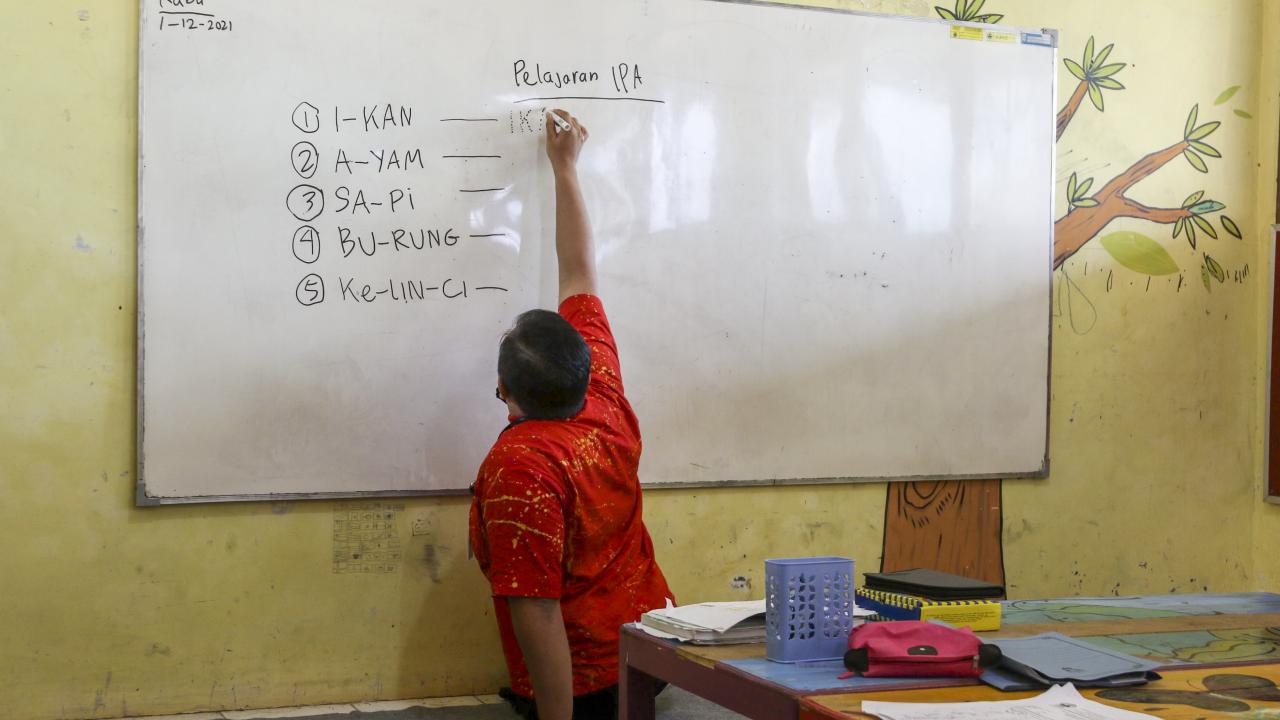 Rabu
1-12-2021
Pelajaran IPA
① I-KAN — IK
② A-YAM —
③ SA-Pi —
④ BU-RUNG —
⑤ Ke-LIN-CI —